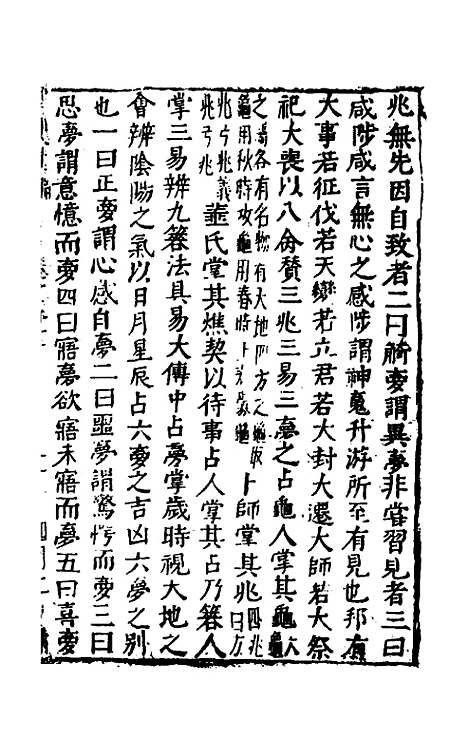 兆無先因自致者二曰觭夢謂異夢非嘗習見者三曰
咸陟咸言無心之感陟謂神䰟升游所至有見也邦有
大事若征伐若天變若立君若大封大遷大師若大祭
祀大喪以八命贊三兆三易三夢之占龜人掌其龜六
之屬各有名物有天地四方之龜取
龜用秋時攻龜用春時上
卜師掌其兆四兆曰方
兆弓兆義
兆弓兆
菙氏掌其燋契以待事占人掌其占乃簭人
掌三易辨九簭法具易大傳中占夢掌歲時視大地之
會辨陰陽之氣以日月星辰占六夢之吉凶六夢之别
也一曰正夢謂心感自夢二曰噩夢謂驚愕而夢三曰
思夢謂意憶而夢四曰寤夢欲寤未寤而夢五曰喜夢